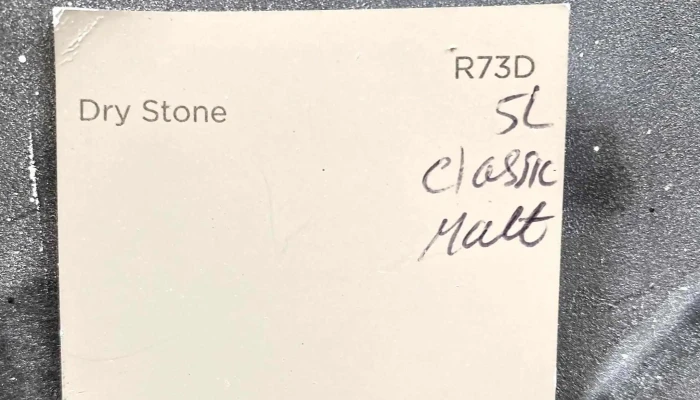 R73D
Dry Stone
5L
Classic
Matt